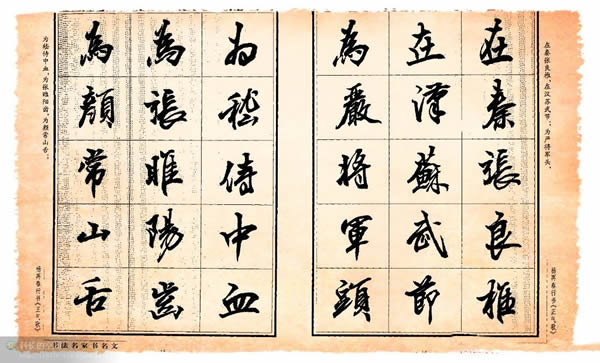 在秦张良椎，在汉苏武节；为严将军头，
杨再春行书《正气歌》
在秦張良椎
在漢蘇武節
為嚴將軍頭
為嵇侍中血
為張睢陽齒
為顏常山舌
为嵇侍中血，为张睢阳齿，为颜常山舌；
杨再春行书《正气歌》
书法名家书名文